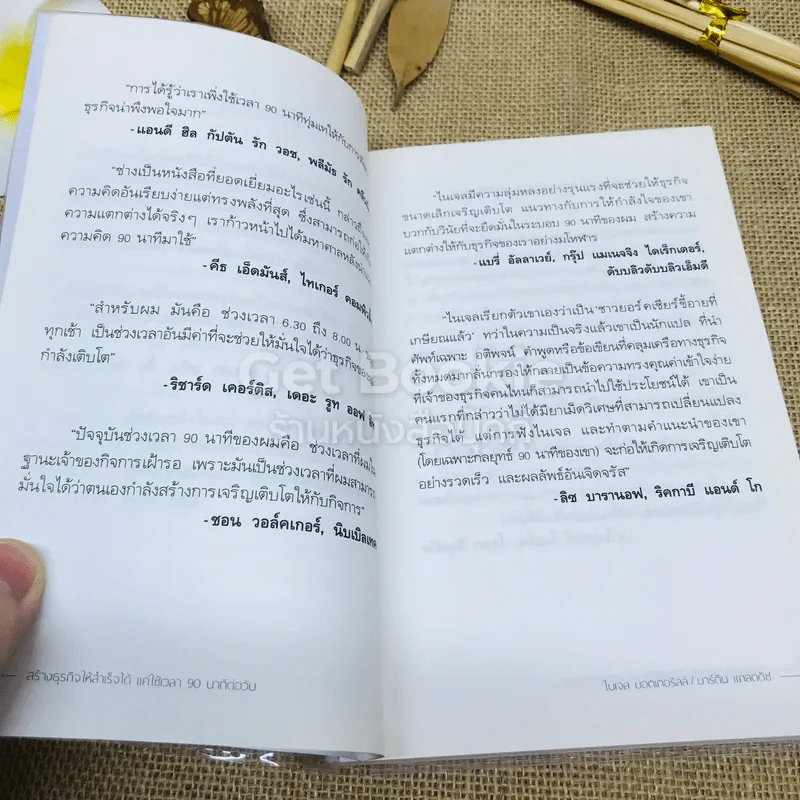 “การได้รู้ว่าเราเพิ่งใช้เวลา 90 นาทีทุ่มเทให้กับการ
ธุรกิจน่าพึงพอใจมาก”
-แอนดี ฮิล กัปตัน รัก วอช, พลีมัธ รัก
“ช่างเป็นหนังสือที่ยอดเยี่ยมอะไรเช่นนี้ กล่าวถึง
ความคิดอันเรียบง่ายแต่ทรงพลังที่สุด ซึ่งสามารถก่อให้
ความแตกต่างได้จริงๆ เราก้าวหน้าไปได้มหาศาลหลัง
ความคิด 90 นาทีมาใช้”
-คีธ เอ็ดมันส์, ไทเกอร์ คอม
“สำหรับผม มันคือ ช่วงเวลา 6.30 ถึง 8.00 น.
ทุกเช้า เป็นช่วงเวลาอันมีค่าที่จะช่วยให้มั่นใจได้ว่าธุรกิจของ
กำลังเติบโต”
-ริชาร์ด เคอร์ติส, เดอะ รูท ออฟ
“ปัจจุบันช่วงเวลา 90 นาทีของผมคือ ช่วงเวลาที่ผมใน
ฐานะเจ้าของกิจการเฝ้ารอ เพราะมันเป็นช่วงเวลาที่ผมสามารถ
มั่นใจได้ว่าตนเองกำลังสร้างการเจริญเติบโตให้กับกิจการ”
-ชอน วอล์คเกอร์, นิบเบิลเทค
สร้างธุรกิจให้สำเร็จได้ แค่ใช้เวลา 90 นาทีต่อวัน
-ไนเจลมีความลุ่มหลงอย่างรุนแรงที่จะช่วยให้ธุรกิจ
ขนาดเล็กเจริญเติบโต แนวทางกับการให้กำลังใจของเขา
บวกกับวินัยที่จะยึดมั่นในระบอบ 90 นาทีของผม สร้างความ
แตกต่างให้กับธุรกิจของเราอย่างมโหฬาร
-แบรี่ อัลลาเวย์, กรุ๊ป แมเนจจิง ไดเร็กเตอร์,
ดับบลิวดับบลิวเอ็มดี
-ไนเจลเรียกตัวเขาเองว่าเป็น ‘ชาวยอร์คเชียร์ขี้อายที่
เกษียณแล้ว’ ทว่าในความเป็นจริงแล้วเขาเป็นนักแปล ที่นำ
ศัพท์เฉพาะ อติพจน์ คำพูดหรือข้อเขียนที่คลุมเครือทางธุรกิจ
ทั้งหมดมากลั่นกรองให้กลายเป็นข้อความทรงคุณค่าเข้าใจง่าย
ที่เจ้าของธุรกิจคนไหนก็สามารถนำไปใช้ประโยชน์ได้ เขาเป็น
คนแรกที่กล่าวว่าไม่ได้มียาเม็ดวิเศษที่สามารถเปลี่ยนแปลง
ธุรกิจได้ แต่การฟังไนเจล และทำตามคำแนะนำของเขา
(โดยเฉพาะกลยุทธ์ 90 นาทีของเขา) จะก่อให้เกิดการเจริญเติบโต
อย่างรวดเร็ว และผลลัพธ์อันเจิดจรัส”
-ลิซ บารานอฟ, ริคกาบี แอนด์ โก
ไนเจล บอตเทอริลล์ / มาร์ติน แกลดดิช
Get Bookie
ร้านหนังสือ